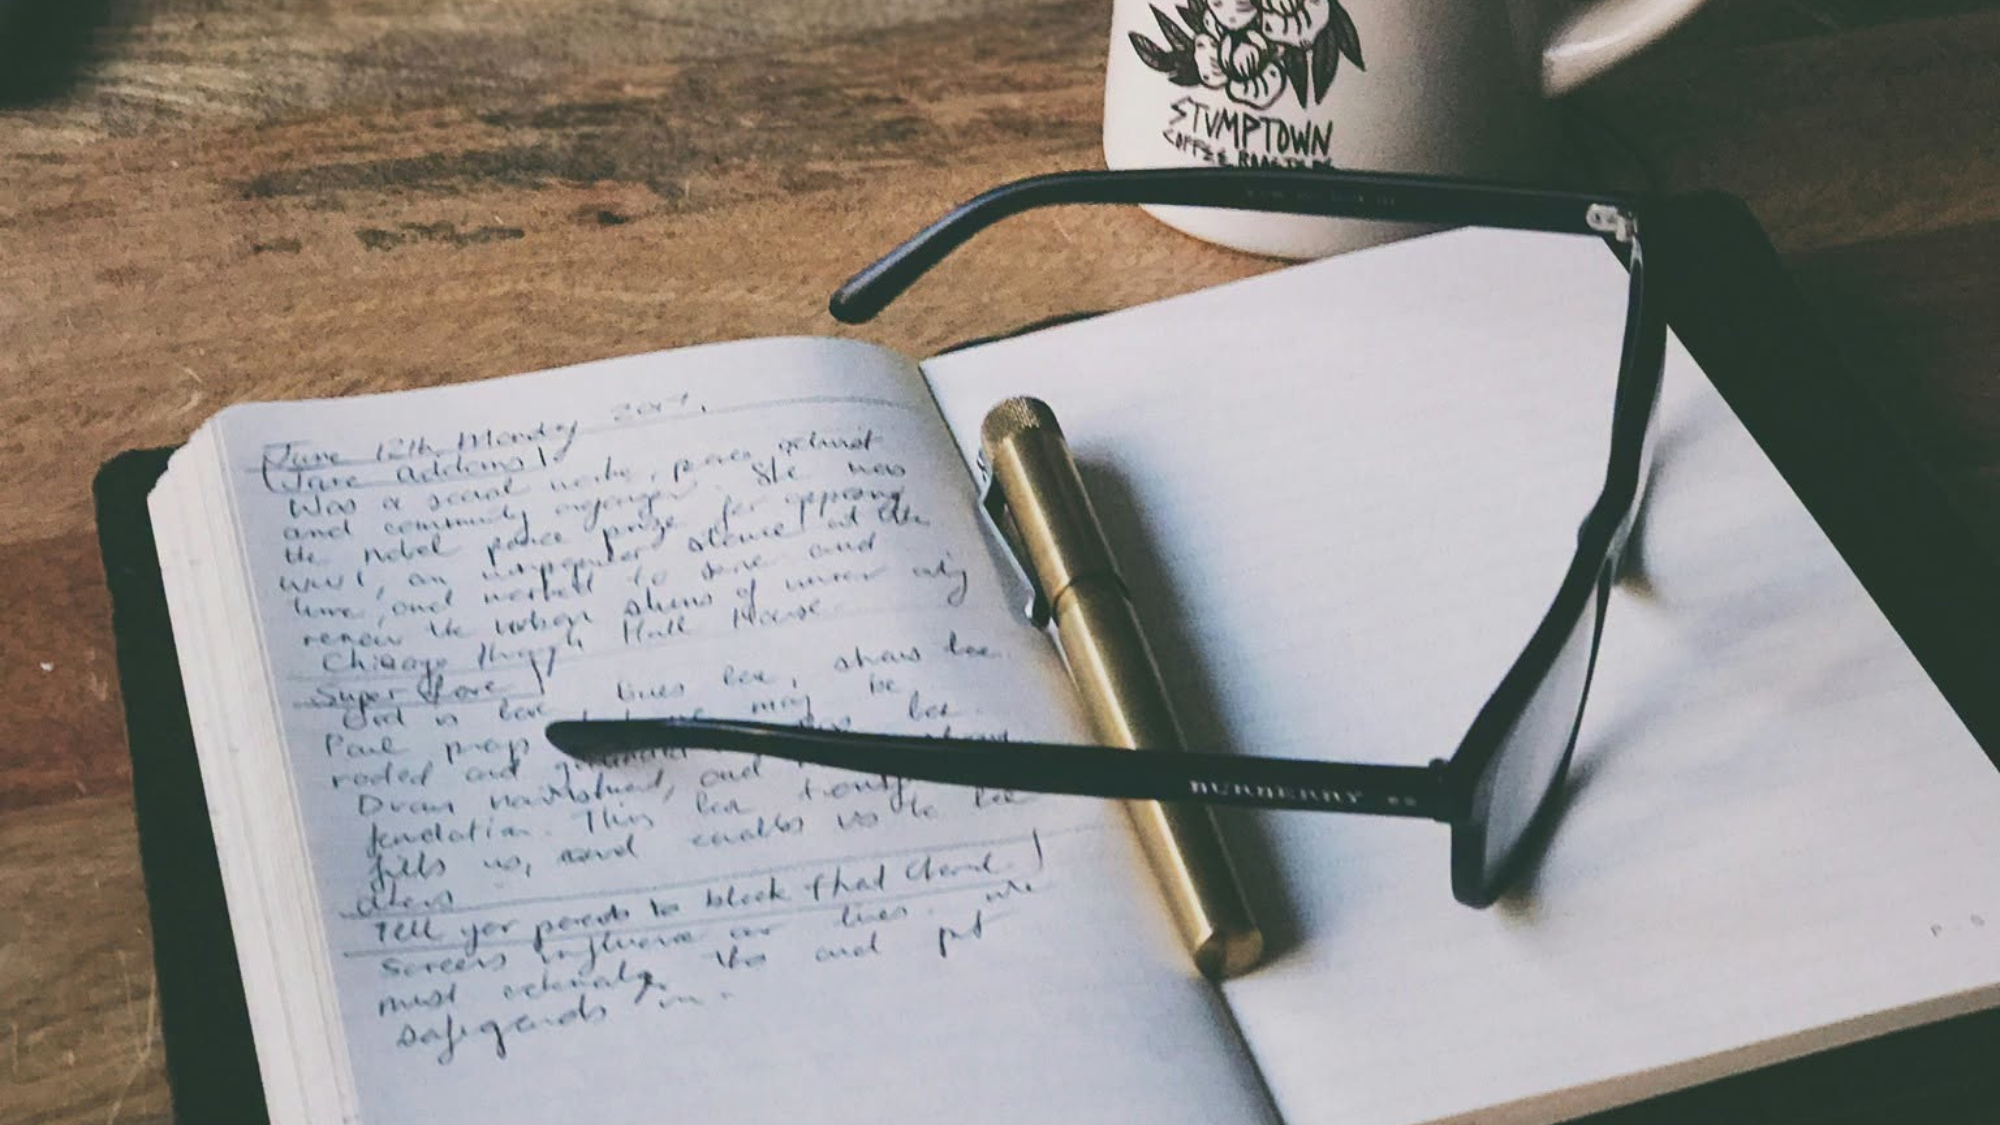 STVMPTOWN
COFFEE ROASTERS
June 12th Monday
Jane Addams
Was a social worke, peace activist
and community organizer. She was
the nobel peace prize for opposing
WW1, an unpopular stance at the
time, and worked to serve and
renew the urban slums of inner city
Chicago through Hull House
Super Love
God is love lives love, shows love
Paul prays may be
roded and grounded love
Drawn nourishment, and
foundation. This love
fills us, and enables us to love
others
Tell yor parents to block that Channel
Screens influence our lives. We
must acknowledge this and put
safegards in.
BURBERRY